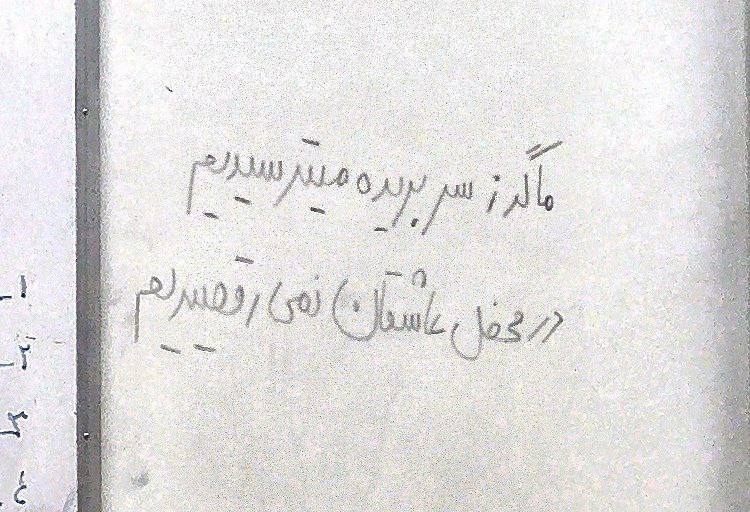 ما گر ز سر بریده میترسیدیم
در محفل عاشقان نمی رقصیدیم
۱_
۲_
۳_
۴_